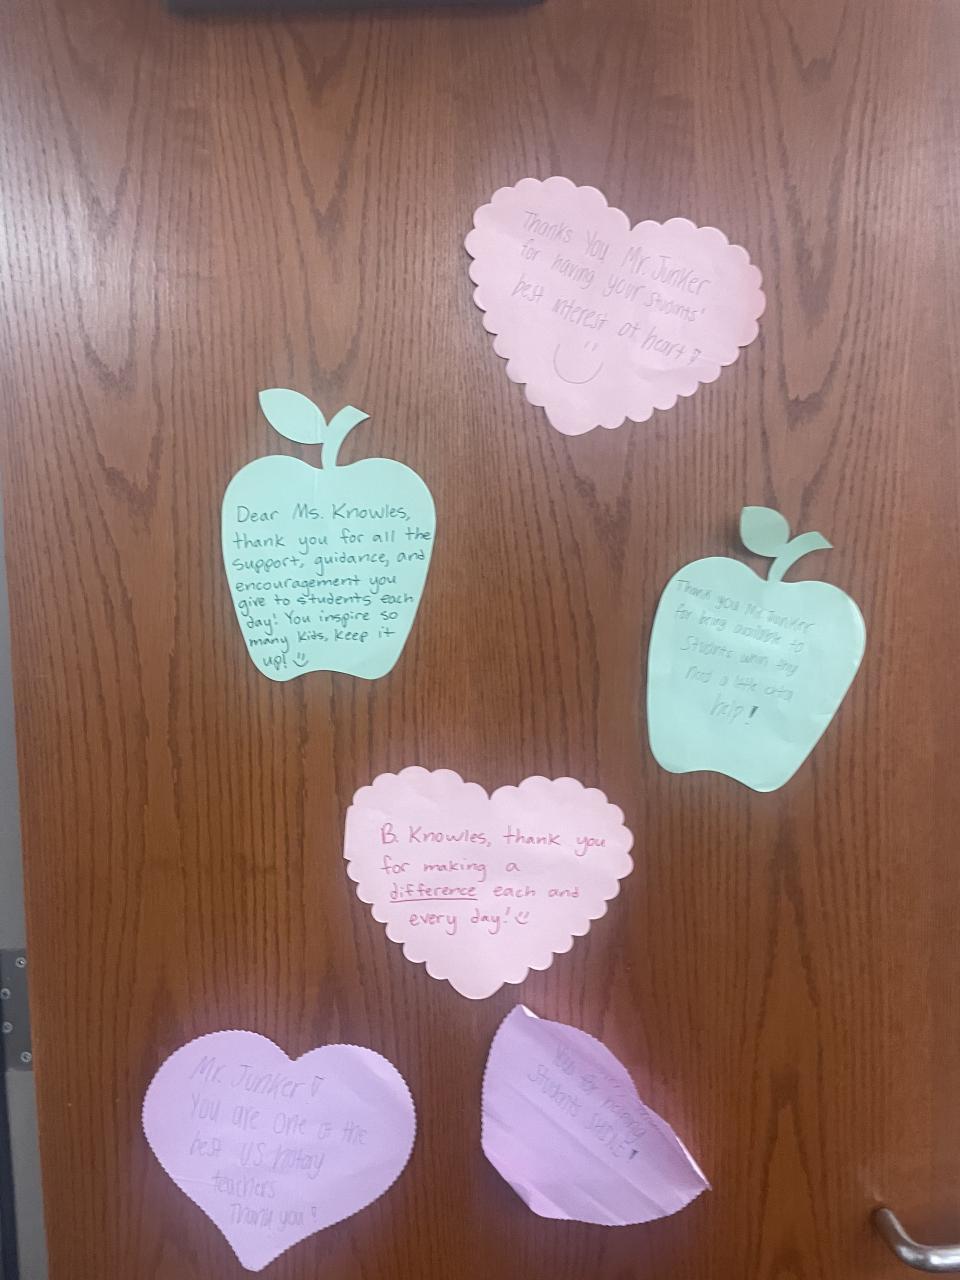 Thanks You Mr. Junker
for having your students'
best interest at heart
Dear Ms. Knowles,
thank you for all the
support, guidance, and
encouragement you
give to students each
day! You inspire so
many kids, keep it
up!
Thank you Mr. Junker
for being available to
Students when they
need a little extra
help!
B. Knowles, thank you
for making a
difference each and
every day!
Mr. Junker
You are one of the
best US history
teachers
Thank you!
You for helping
Students SHINE!